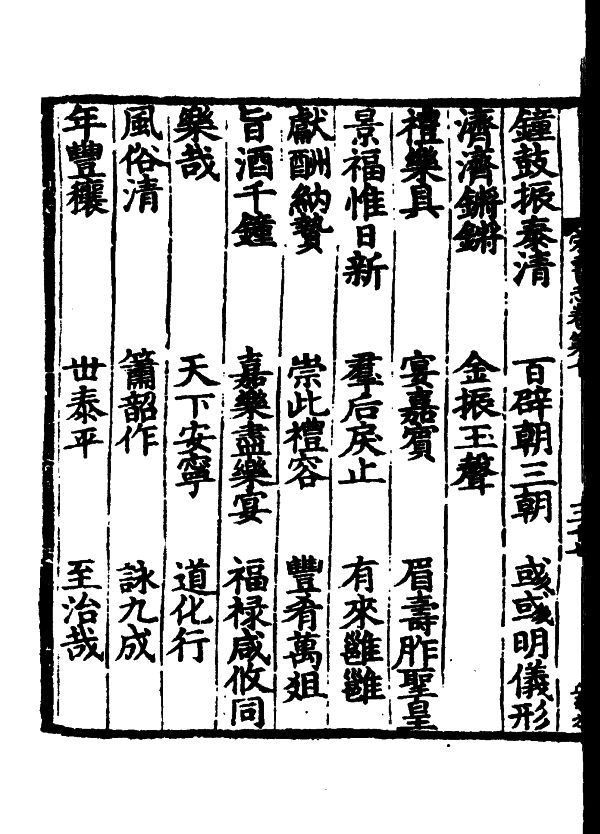 鐘鼓振泰清　百辟朝三朝　彧彧明儀形
濟濟鏘鏘　金振玉聲
禮樂具　宴嘉賓　眉壽胙聖皇
景福惟日新　羣后戾止　有來雝雝
獻酬納贄　崇此禮容　豐肴萬俎
旨酒千鐘　嘉樂盡樂宴　福禄咸攸同
樂哉　天下安寧　道化行
風俗清　簫韶作　詠九成
年豐穰　世泰平　至治哉